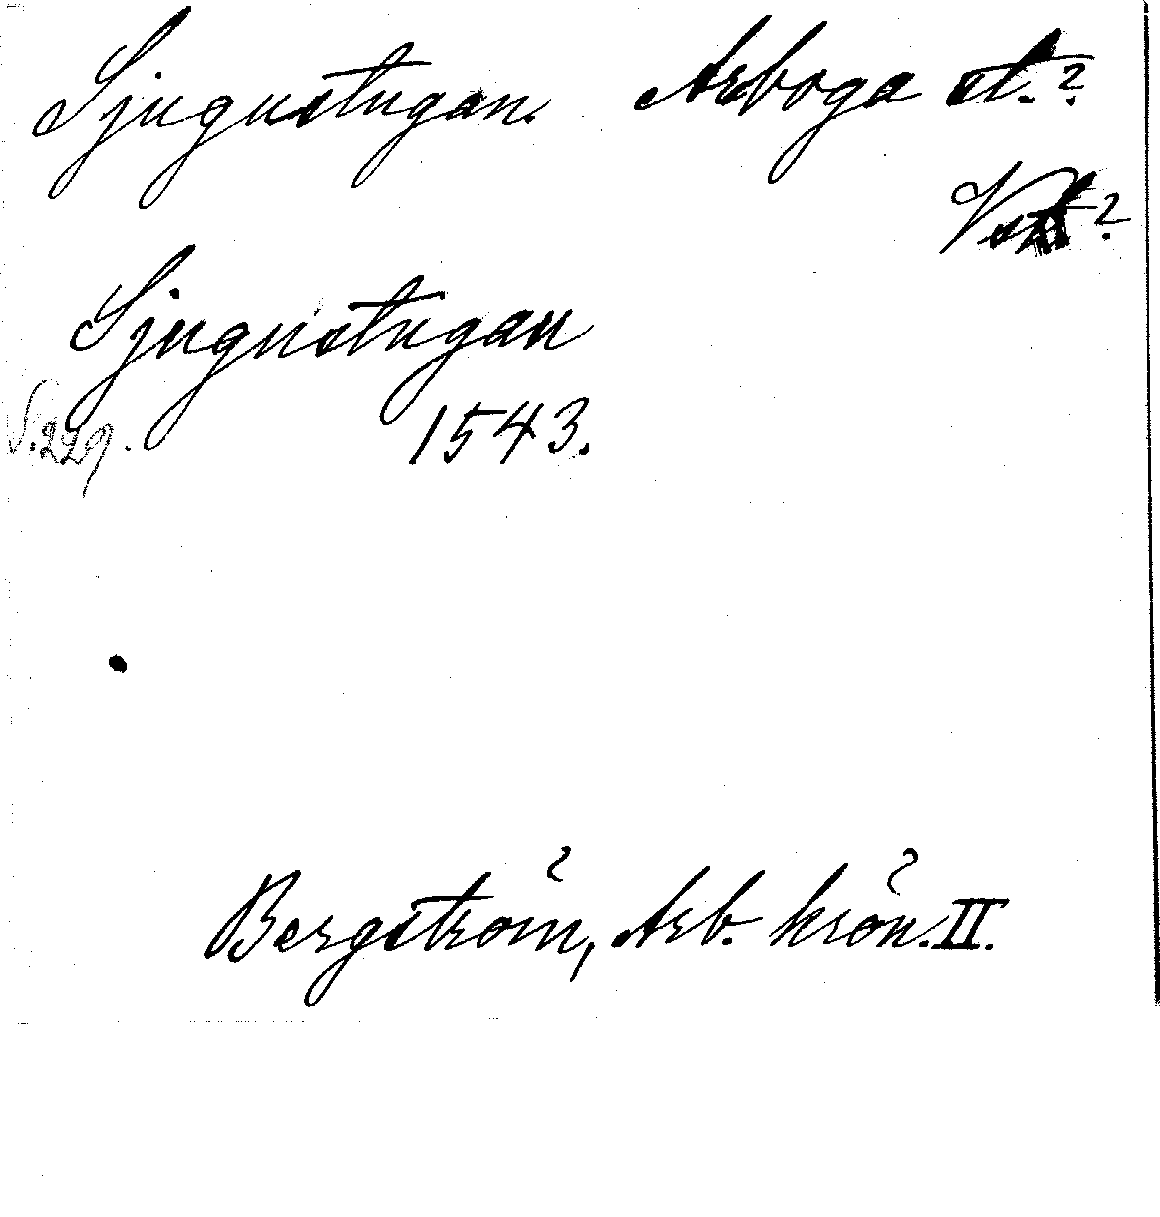 Sjugustugan. Arboga st.?
Vstl?
Sjugustugan
S. 229. 1543.
Bergström, Arb. krön. II.